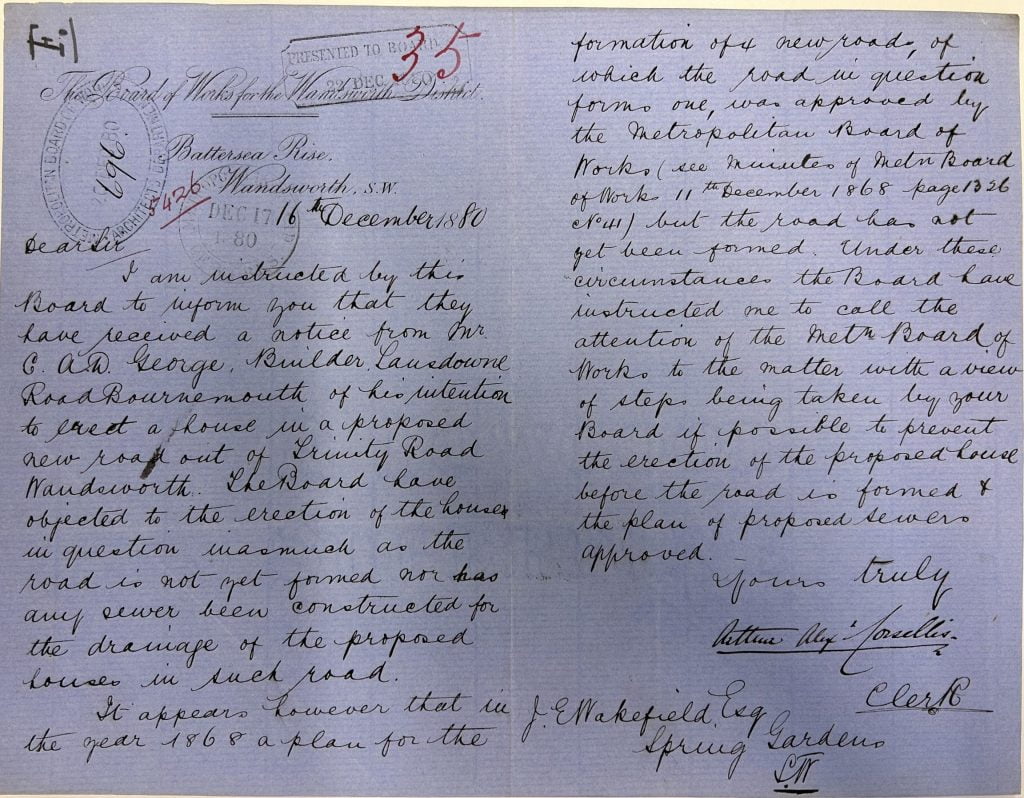 F.
PRESENTED TO BOARD
22 DEC 80
35
The Board of Works for the Wandsworth District.
METROPOLITAN BOARD OF WORKS
ARCHITECT
80
696
Battersea Rise,
Wandsworth, S.W.
DEC 17
80
16th December 1880
Dear Sir
I am instructed by this
Board to inform you that they
have received a notice from Mr.
C. A. D. George, Builder, Lansdowne
Road Bournemouth of his intention
to erect a house in a proposed
new road out of Trinity Road
Wandsworth. The Board have
objected to the erection of the house
in question inasmuch as the
road is not yet formed nor has
any sewer been constructed for
the drainage of the proposed
houses in such road.
It appears however that in
the year 1868 a plan for the
formation of 4 new roads, of
which the road in question
forms one, was approved by
the Metropolitan Board of
Works (see Minutes of Metn Board
of Work 11th December 1868 page 1326
No 41) but the road has not
yet been formed. Under these
circumstances the Board have
instructed me to call the
attention of the Metn Board of
Works to the matter with a view
of steps being taken by your
Board if possible to prevent
the erection of the proposed house
before the road is formed &
the plan of proposed sewers
approved.
Yours truly
Arthur Alexr Corsellis
Clerk
J. E Wakefield, Esq
Spring Gardens
S.W